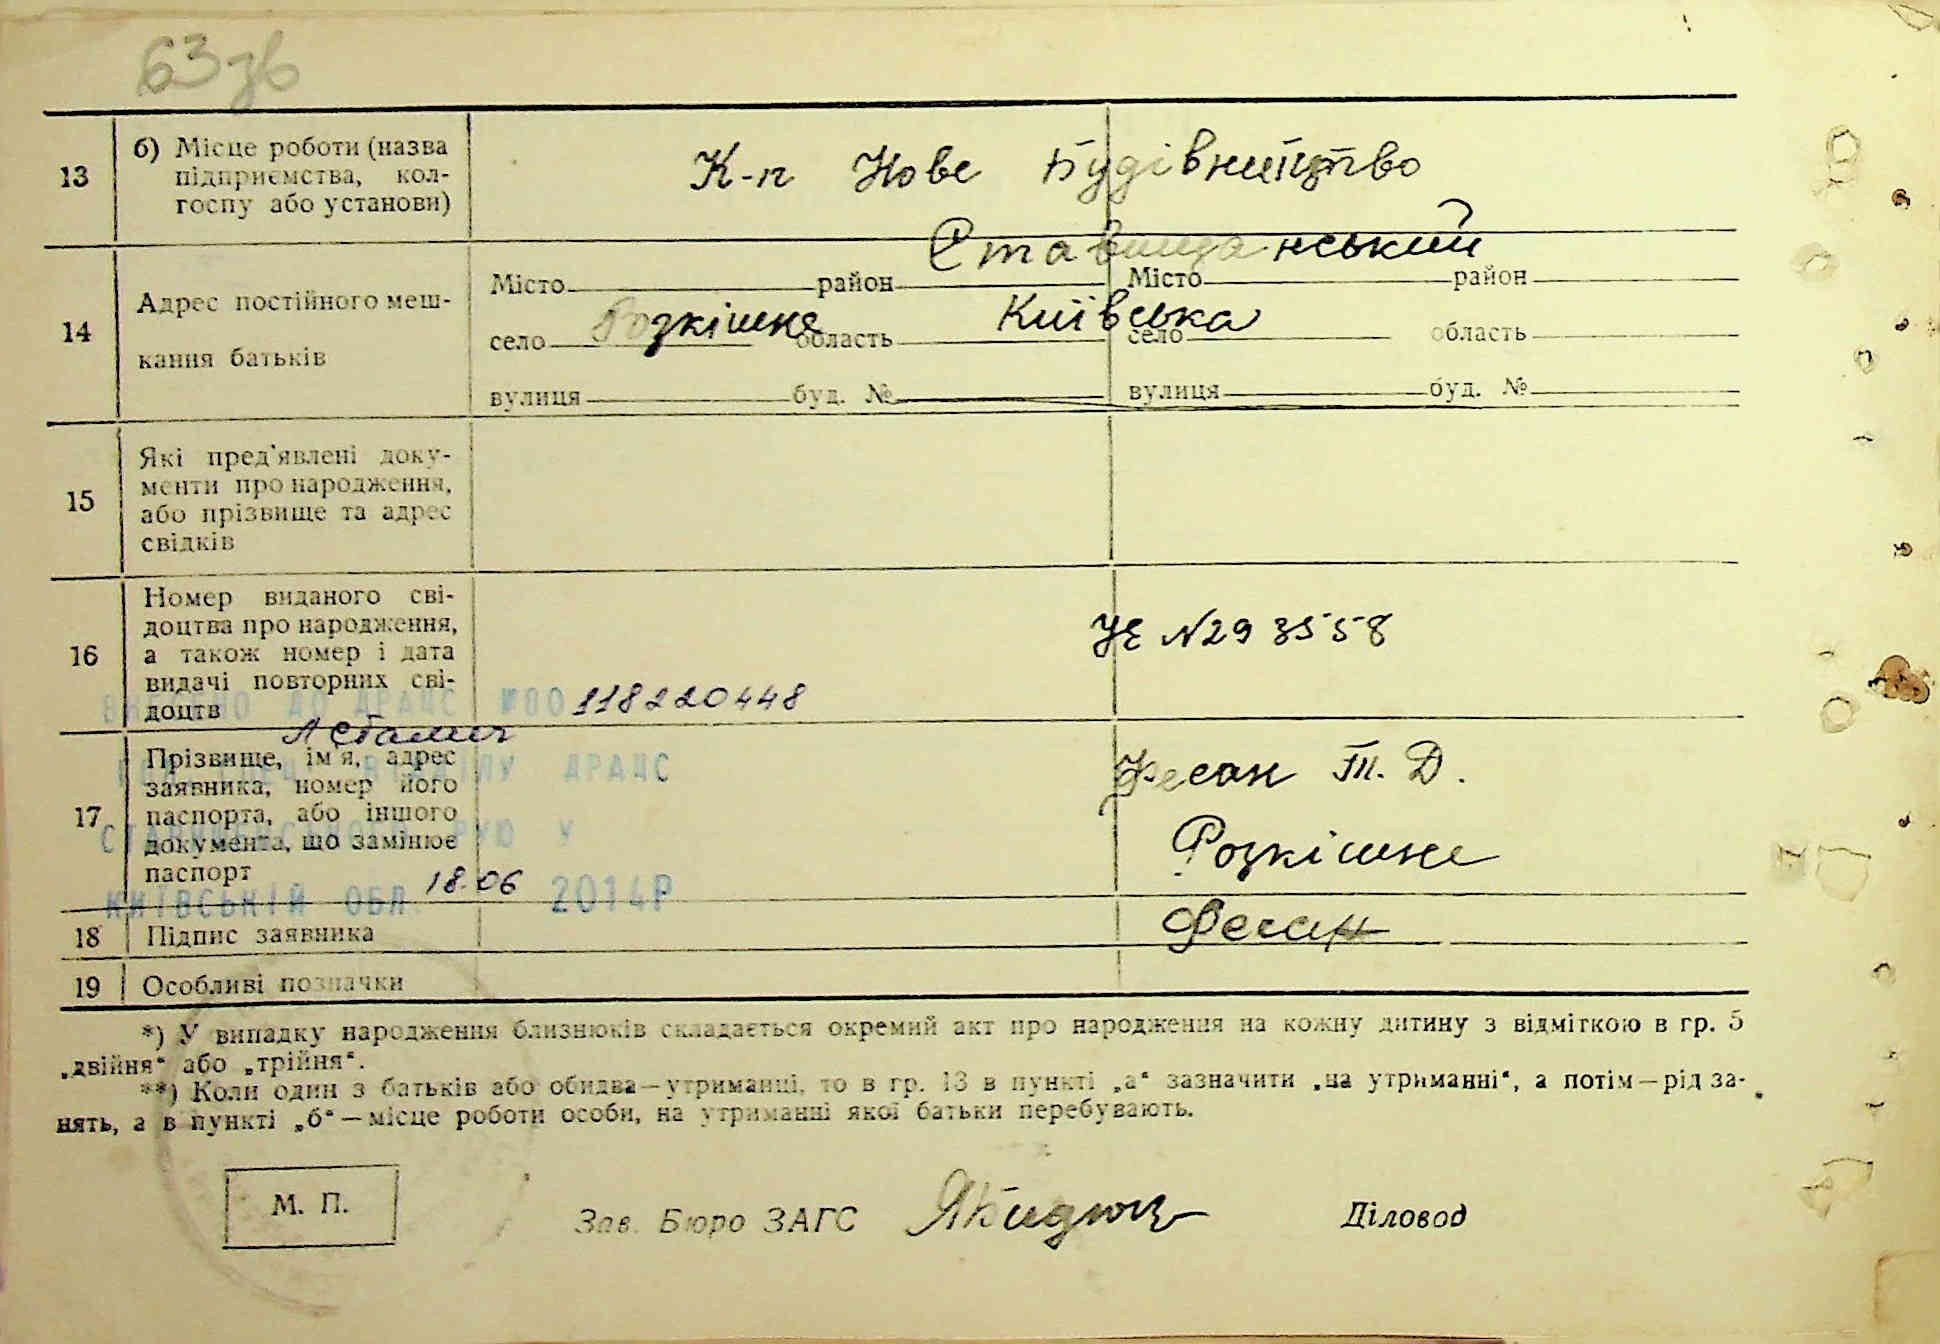 63 зв
13
б) Місце роботи (назва
підприємства, кол-
госпу або установи)
К-п Нове Будівництво
14
Адрес постійного меш-
кання батьків
Ставищанський
Місто район Місто район
село Розкішне область Київська село область
вулиця буд. № вулиця буд. №
15
Які пред'явлені доку-
менти про народження,
або прізвище та адрес
свідків
16
Номер виданого сві-
доцтва про народження,
а також номер і дата
видачі повторних сві-
доцтв
УЕ №293558
ВНЕСЕНО ДО ДРАЦС №00 118220448
17
Прізвище, ім'я, адрес
заявника, номер його
паспорта, або іншого
документа, що замінює
паспорт
ВІДДІЛУ ДРАЦС
РУЮ У
КИЇВСЬКІЙ ОБЛ. 18.06 2014Р
Фесан Т. Д.
Розкішне
18
Підпис заявника
Фесан
19
Особливі позначки
*) У випадку народження близнюків складається окремий акт про народження на кожну дитину з відміткою в гр. 5
„двійня“ або „трійня“.
**) Коли один з батьків або обидва—утриманці, то в гр. 13 в пункті „а“ зазначити „на утриманні“, а потім—рід за-
нять, а в пункті „б“—місце роботи особи, на утриманні якої батьки перебувають.
М. П.
Зав. Бюро ЗАГС
Діловод